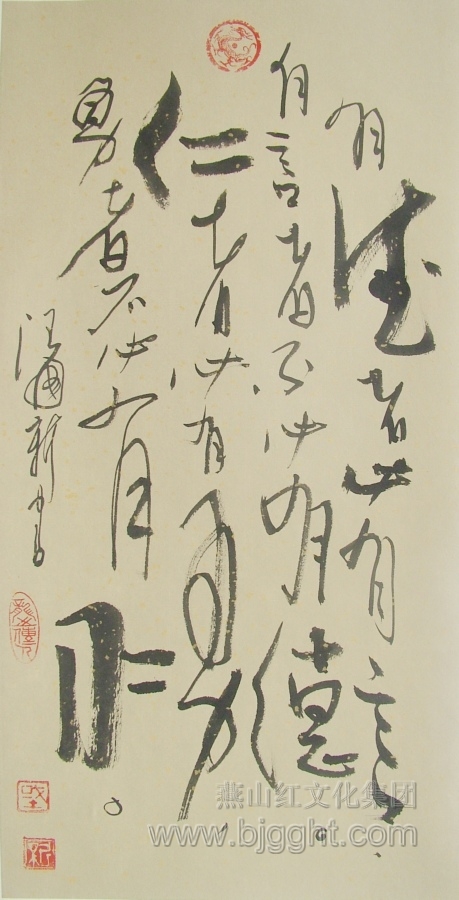 有德者必有言、
有言者不必有德。
仁者必有勇、
勇者不必有仁。
汪國新书
燕山红文化集团
www.bjgght.com